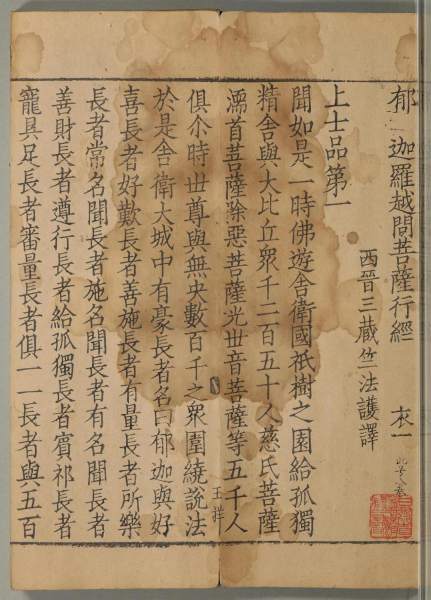 郁迦羅越問菩薩行經 衣一
西晉三藏竺法護譯
上士品第一
聞如是一時佛遊舍衛國祇樹之園給孤獨
精舍與大比丘衆千二百五十人慈氏菩薩
濡首菩薩除惡菩薩光世音菩薩等五千人
俱尒時世尊與無央數百千之衆圍繞說法
於是舍衛大城中有豪長者名曰郁迦與好
喜長者好歎長者善施長者有量長者所樂
長者常名聞長者施名聞長者有名聞長者
善財長者遵行長者給孤獨長者賓祁長者
寵具足長者審量長者俱一一長者與五百
王祥